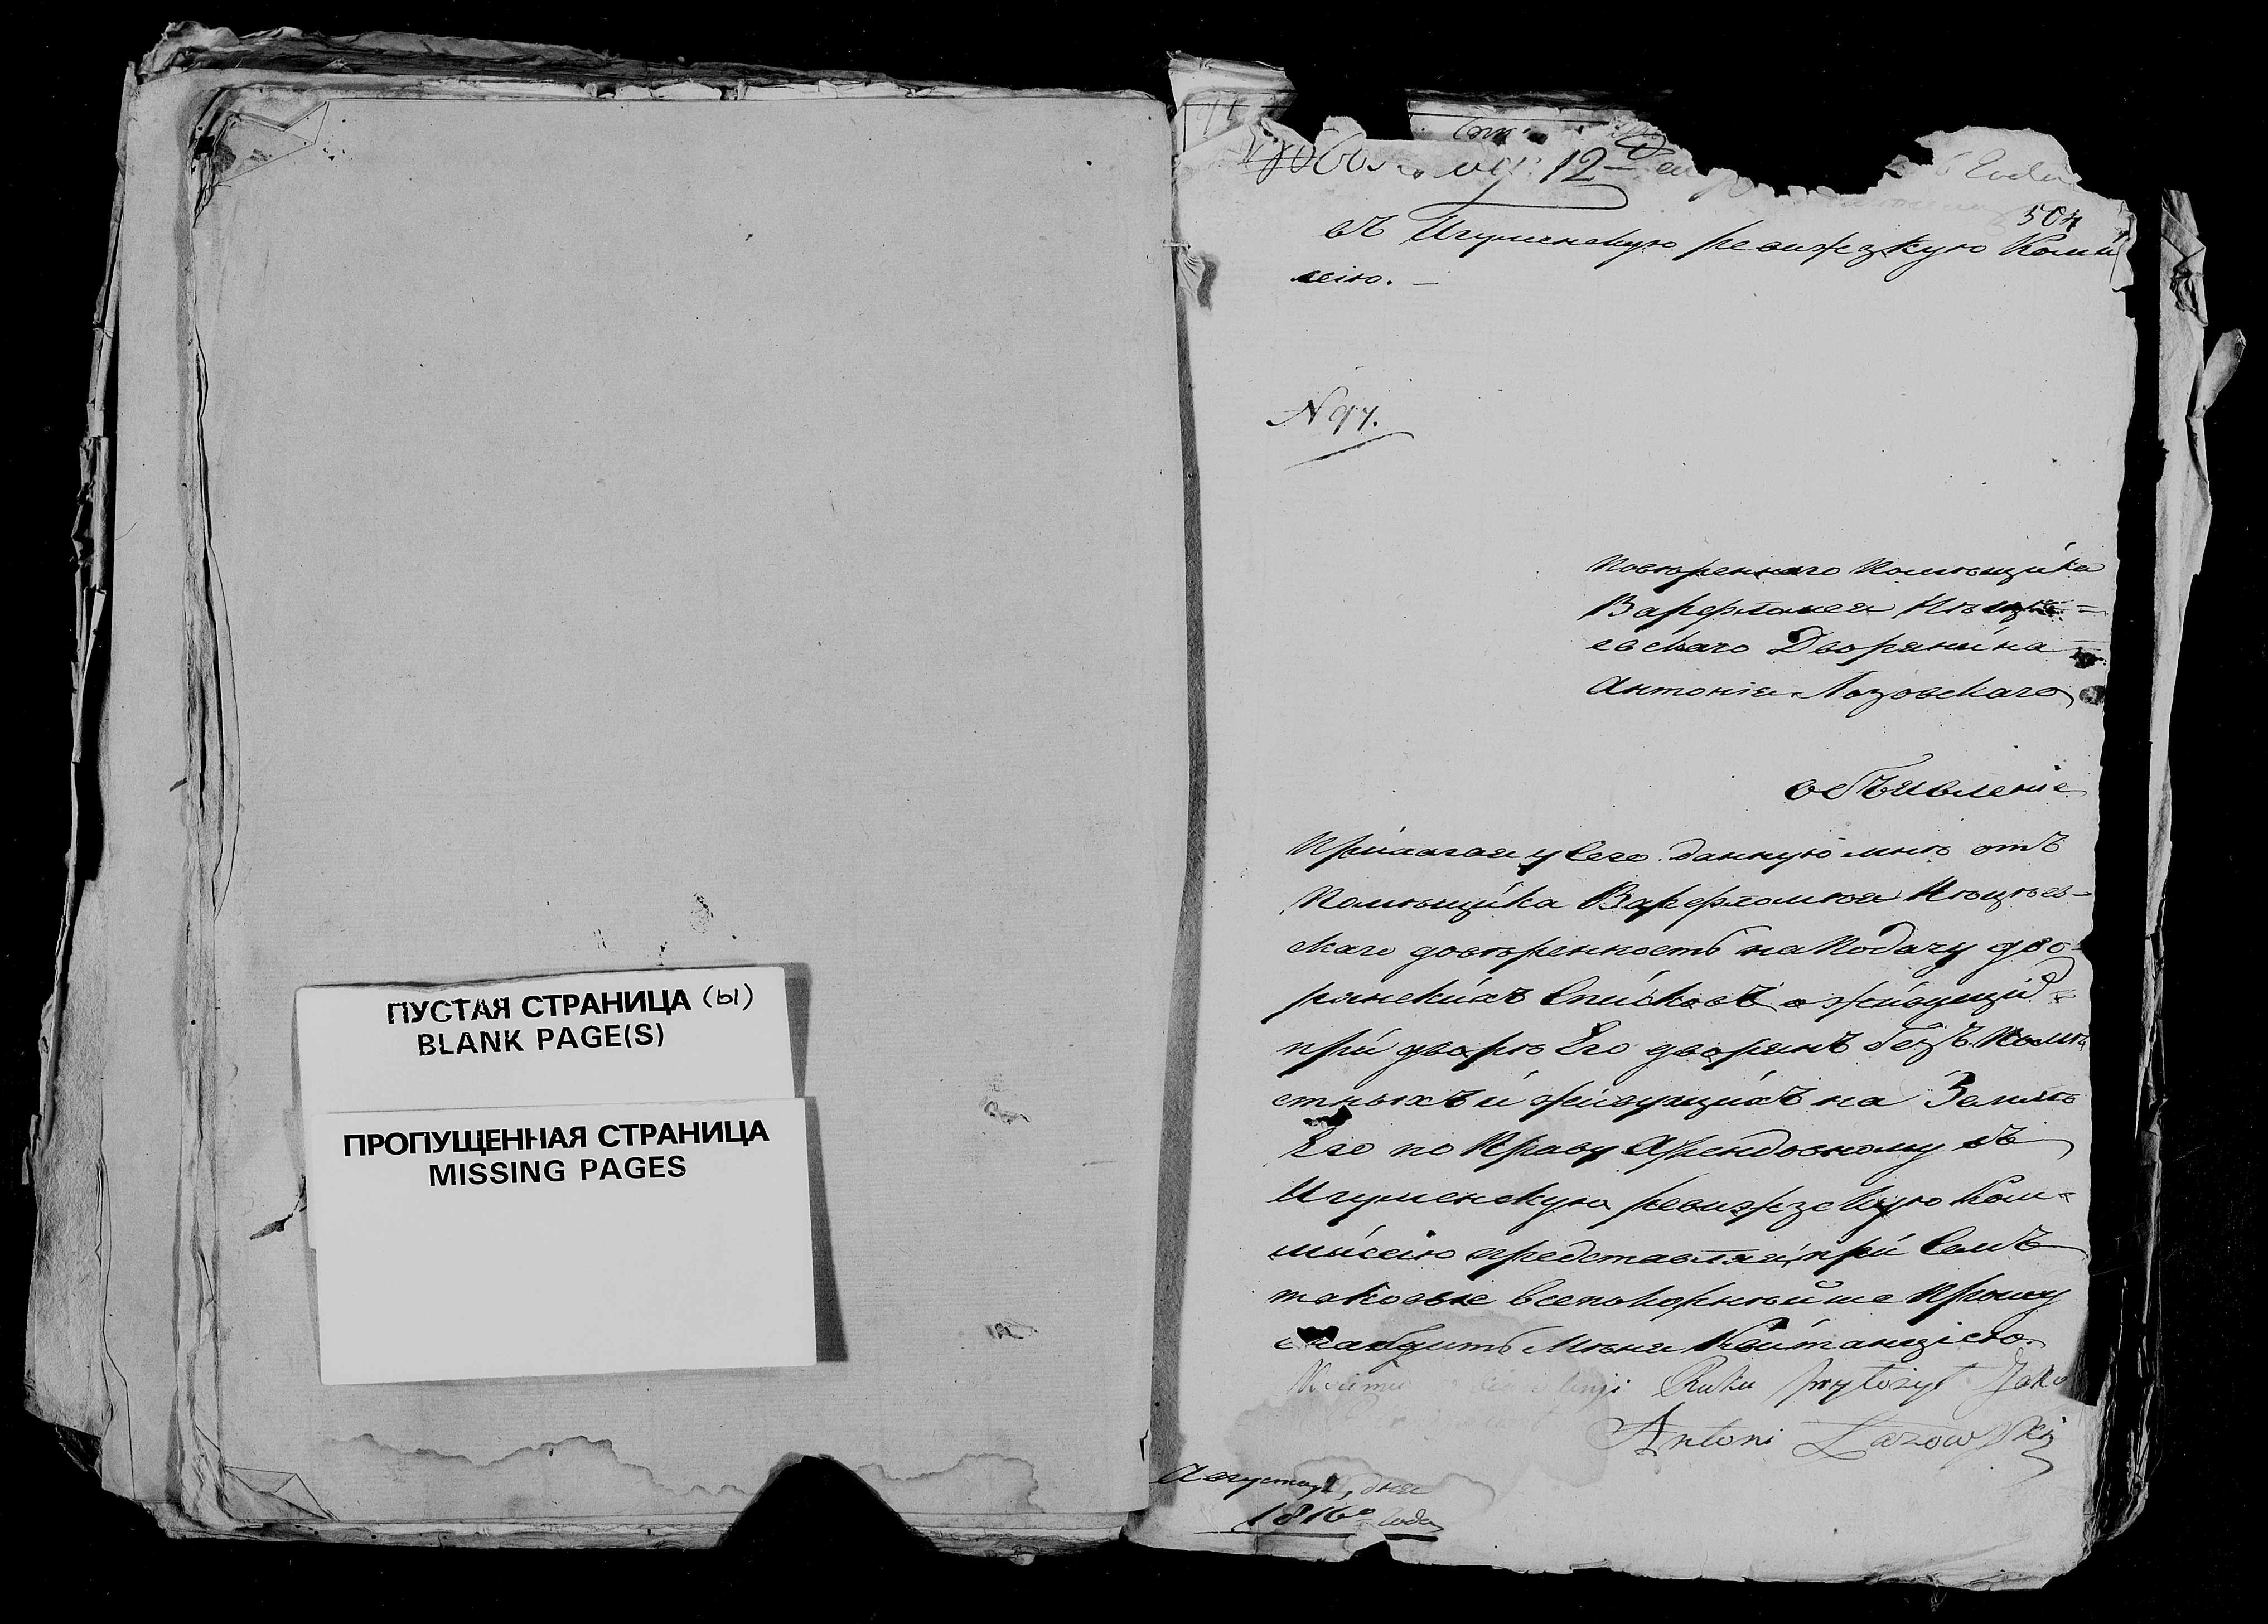 ПУСТАЯ СТРАНИЦА (Ы)
BLANK PAGE(S)
ПРОПУЩЕННАЯ СТРАНИЦА
MISSING PAGES
12
504
въ Игуменскую ревизскую Коми
сію. —
N 97.
Повѣреннаго Помѣщика
Варфоломея
евскаго Дворянина
Антонія Лазовскаго
объявленіе
Прилагая у сего данную мнѣ отъ
Помѣщика Варфоломѣя
скаго довѣренность на подачу дво-
рянскихъ списковъ о живущих
при дворѣ Его дворянъ безъ помѣ
стныхъ и живущихъ на Землѣ
Его по Праву Арендовному въ
Игуменскую ревизскую Ком-
мисію представляя при семъ
таковые всепокорнѣйше Прошу
снабдить Меня Квитанціею.
Ruku przytożył Jako
Antoni Łazowski
Августа дня
1816го года